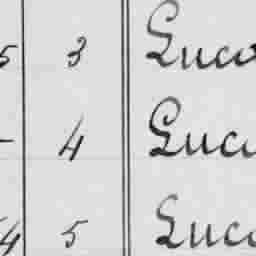 5 3 Luco
4 Lucu
4 5 Luci